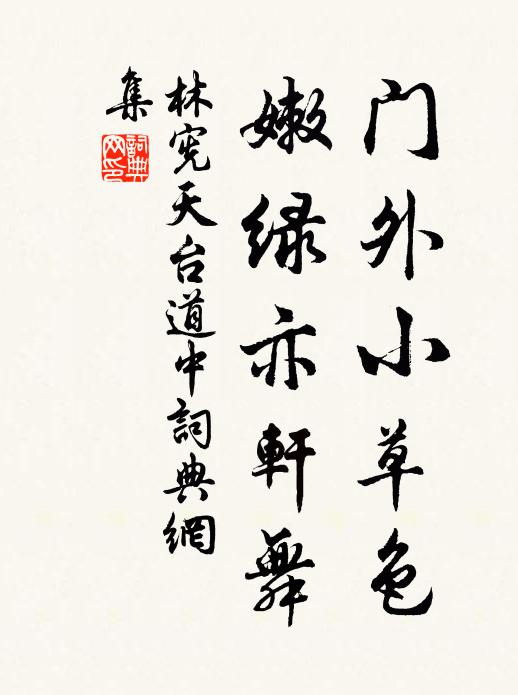 门外小草色
嫩绿亦軒舞
林宪天台道中詞典網
集
詞典网印